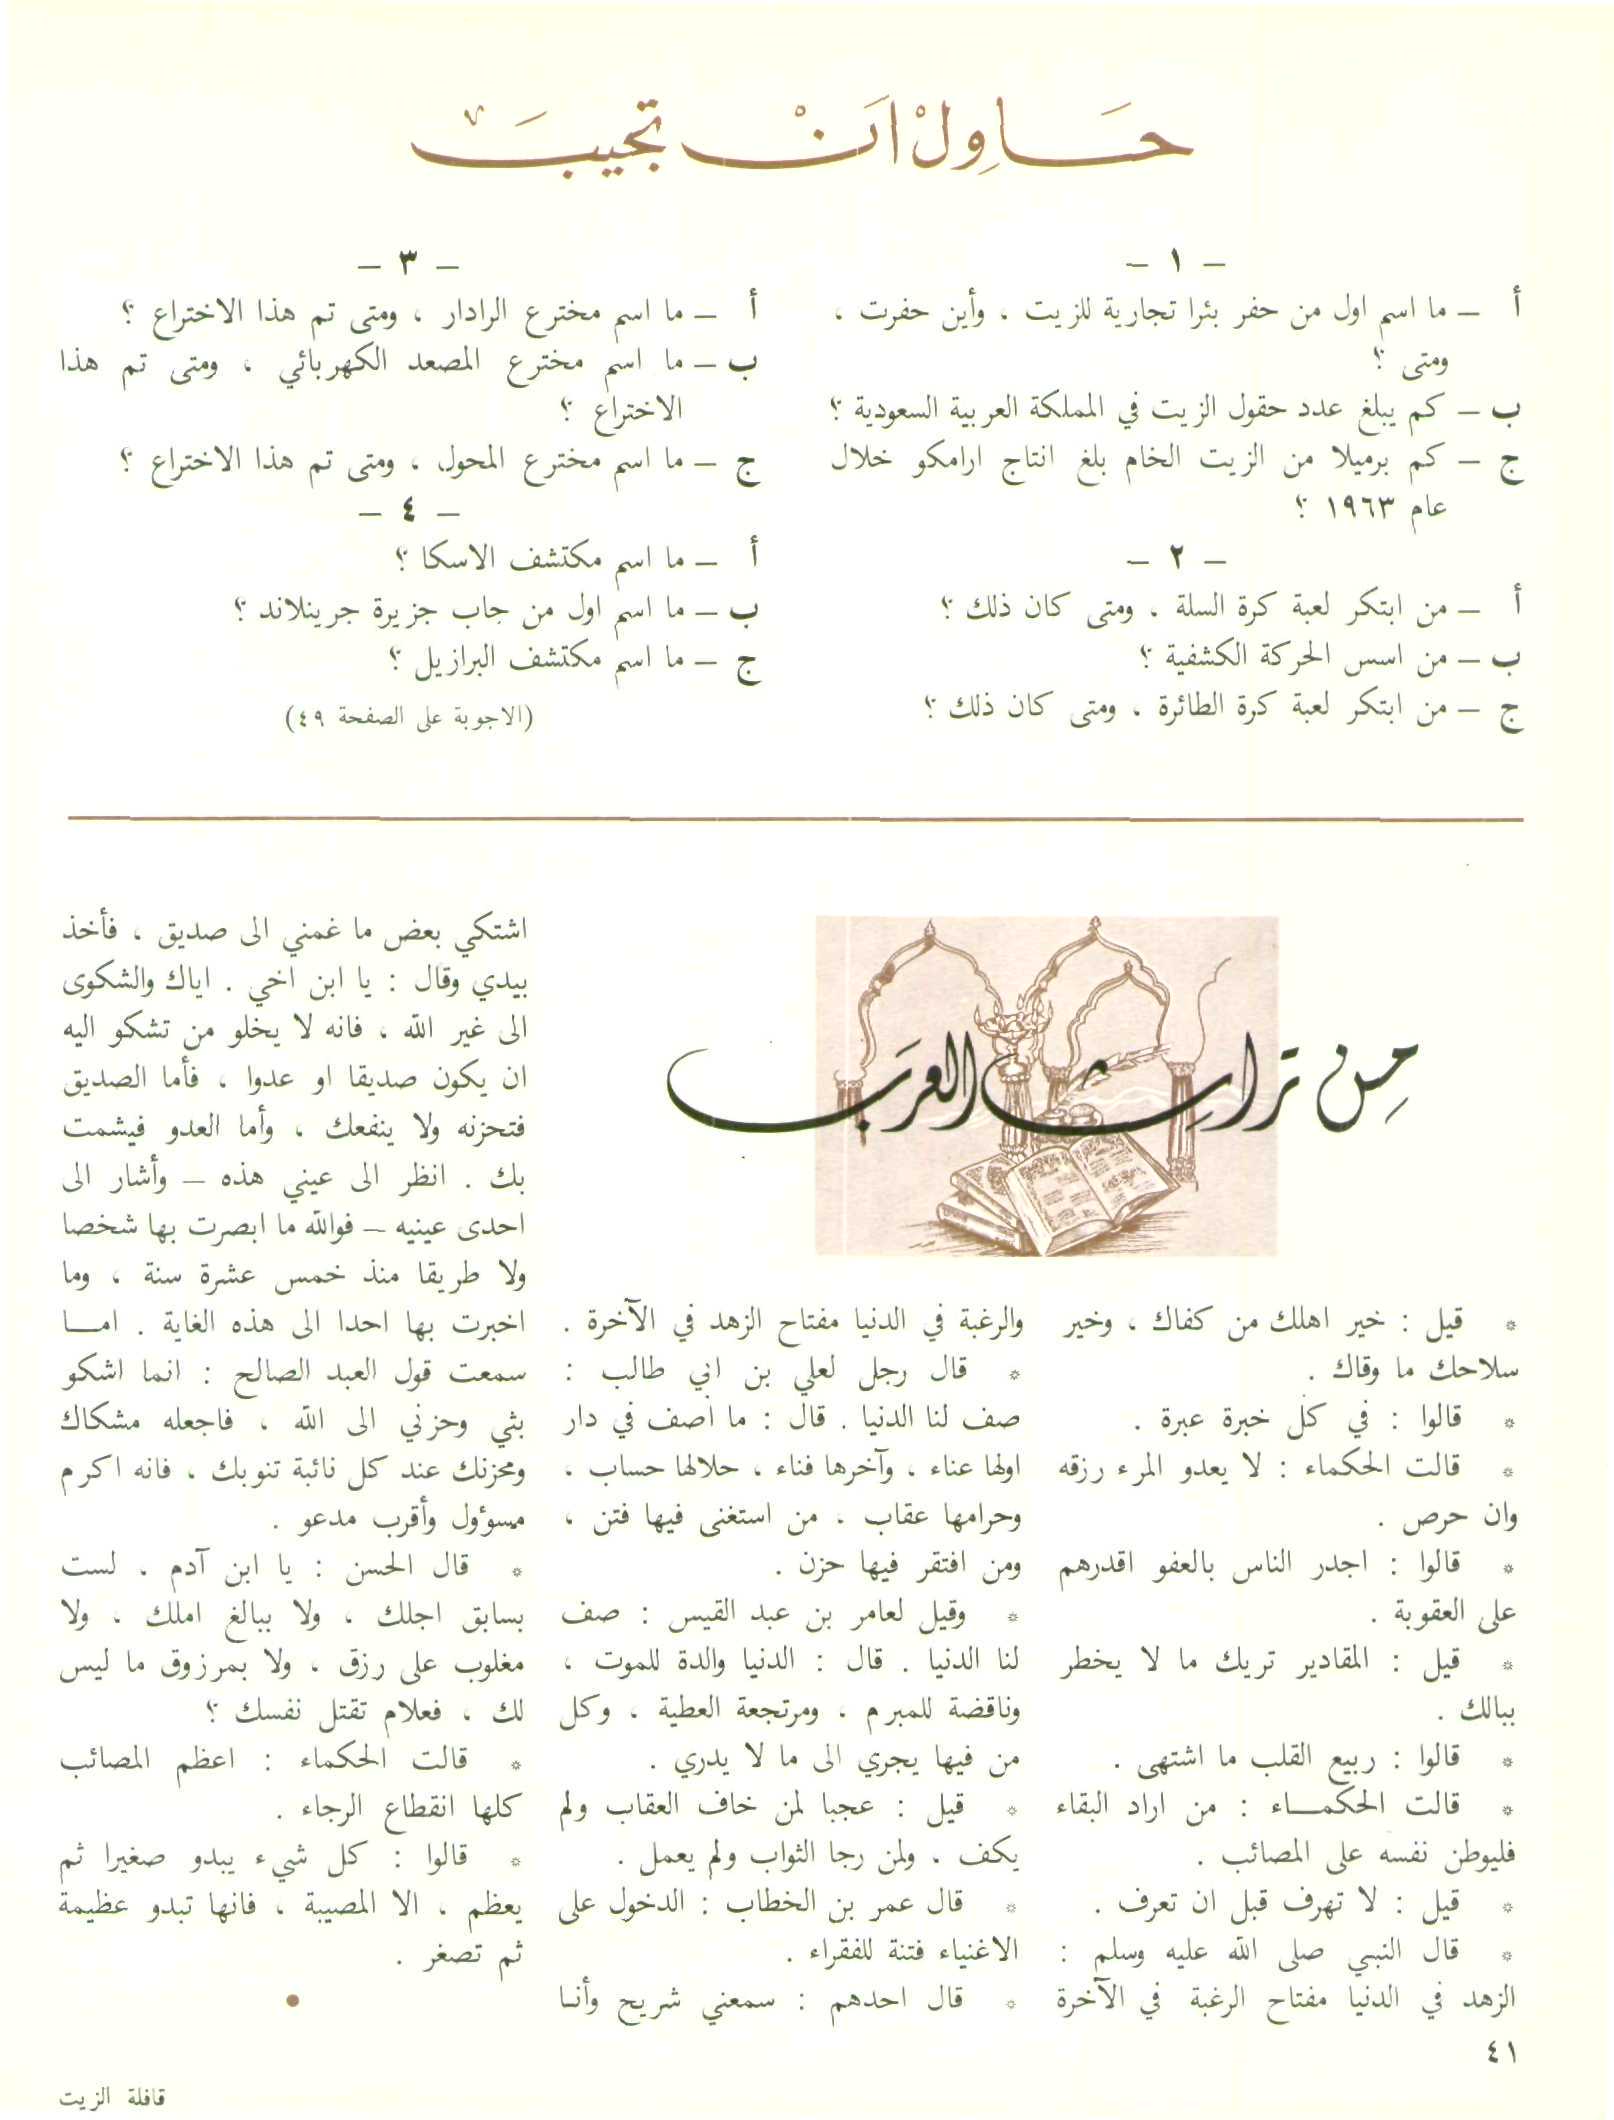 حاول أن تجيب
– ١ –
أ – ما اسم اول من حفر بئرا تجارية للزيت ، وأين حفرت ،
ومتى ؟
ب – كم يبلغ عدد حقول الزيت في المملكة العربية السعودية ؟
ج – كم برميلا من الزيت الخام بلغ انتاج ارامكو خلال
عام ١٩٦٣ ؟
– ٢ –
أ – من ابتكر لعبة كرة السلة ، ومتى كان ذلك ؟
ب – من اسس الحركة الكشفية ؟
ج – من ابتكر لعبة كرة الطائرة ، ومتى كان ذلك ؟
– ٣ –
أ – ما اسم مخترع الرادار ، ومتى تم هذا الاختراع ؟
ب – ما اسم مخترع المصعد الكهربائي ، ومتى تم هذا
الاختراع ؟
ج – ما اسم مخترع المحول ، ومتى تم هذا الاختراع ؟
– ٤ –
أ – ما اسم مكتشف الاسكا ؟
ب – ما اسم اول من جاب جزيرة جرينلاند ؟
ج – ما اسم مكتشف البرازيل ؟
(الاجوبة على الصفحة ٤٩)
من تراث العرب
* قيل : خير اهلك من كفاك ، وخير
سلاحك ما وقاك .
* قالوا : في كل خبرة عبرة .
* قالت الحكماء : لا يعدو المرء رزقه
وان حرص .
* قالوا : اجدر الناس بالعفو اقدرهم
على العقوبة .
* قيل : المقادير تريك ما لا يخطر
ببالك .
* قالوا : ربيع القلب ما اشتهى .
* قالت الحكمــاء : من اراد البقاء
فليوطن نفسه على المصائب .
* قيل : لا تهرف قبل ان تعرف .
* قال النبي صلى الله عليه وسلم :
الزهد في الدنيا مفتاح الرغبة في الآخرة
والرغبة في الدنيا مفتاح الزهد في الآخرة .
* قال رجل لعلي بن ابي طالب :
صف لنا الدنيا . قال : ما أصف في دار
اولها عناء ، وآخرها فناء ، حلالها حساب ،
وحرامها عقاب ، من استغنى فيها فتن ،
ومن افتقر فيها حزن .
* وقيل لعامر بن عبد القيس : صف
لنا الدنيا . قال : الدنيا والدة للموت ،
وناقضة للمبرم ، ومرتجعة العطية ، وكل
من فيها يجري الى ما لا يدري .
* قيل : عجبا لمن خاف العقاب ولم
يكف ، ولمن رجا الثواب ولم يعمل .
* قال عمر بن الخطاب : الدخول على
الاغنياء فتنة للفقراء .
* قال احدهم : سمعني شريح وأنـا
اشتكي بعض ما غمني الى صديق ، فأخذ
بيدي وقال : يا ابن اخي . اياك والشكوى
الى غير الله ، فانه لا يخلو من تشكو اليه
ان يكون صديقا او عدوا ، فأما الصديق
فتحزنه ولا ينفعك ، وأما العدو فيشمت
بك . انظر الى عيني هذه – وأشار الى
احدى عينيه – فوالله ما ابصرت بها شخصا
ولا طريقا منذ خمس عشرة سنة ، وما
اخبرت بها احدا الى هذه الغاية . امــا
سمعت قول العبد الصالح : انما اشكو
بثي وحزني الى الله ، فاجعله مشكاك
ومحزنك عند كل نائبة تنوبك ، فانه اكرم
مسؤول وأقرب مدعو .
* قال الحسن : يا ابن آدم ، لست
بسابق اجلك ، ولا ببالغ املك ، ولا
مغلوب على رزق ، ولا بمرزوق ما ليس
لك ، فعلام تقتل نفسك ؟
* قالت الحكماء : اعظم المصائب
كلها انقطاع الرجاء .
* قالوا : كل شيء يبدو صغيرا ثم
يعظم ، الا المصيبة ، فانها تبدو عظيمة
ثم تصغر .
٤١
قافلة الزيت